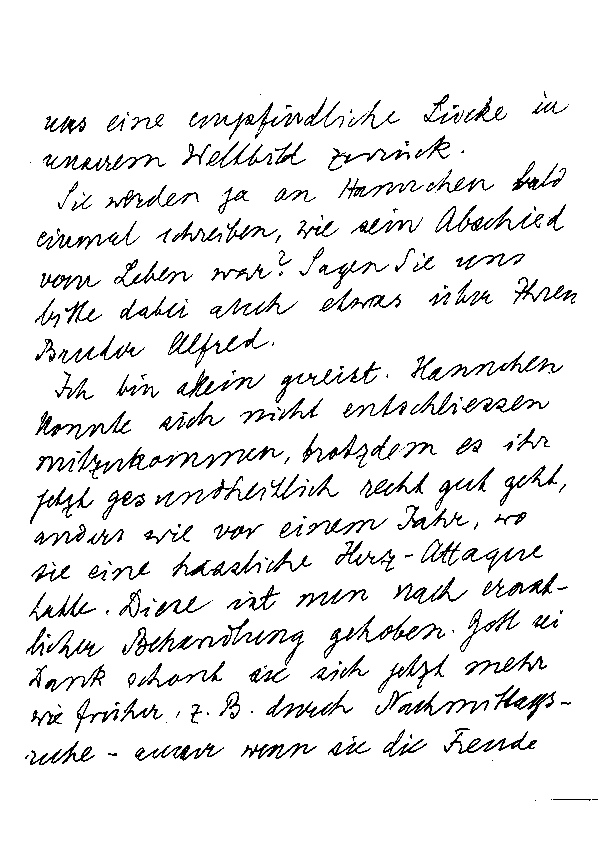 uns eine empfindliche Lücke in
unserem Weltbild zurück.
Sie werden ja an Hannchen bald
einmal schreiben, wie sein Abschied
vom Leben war? Sagen Sie uns
bitte dabei auch etwas über Ihren
Bruder Alfred.
Ich bin allein gereist. Hannchen
konnte sich nicht entschliessen
mitzukommen, trotzdem es ihr
jetzt gesundheitlich recht gut geht,
anders wie vor einem Jahr, wo
sie eine hässliche Herz-Attaque
hatte. Diese ist nun nach ernst-
licher Behandlung gehoben. Gott sei
Dank schont sie sich jetzt mehr
wie früher, z. B. durch Nachmittags-
ruhe - ausser wenn sie die Freude